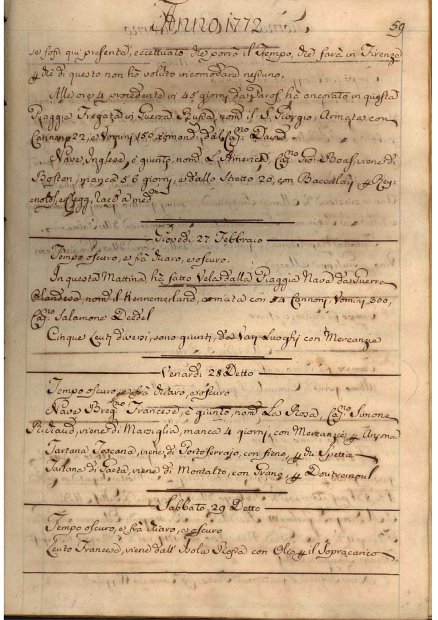 Anno 1772
59
se fosse qui presente, eccettuato che porrò il Tempo, che farà in Firenze
che di questo non ho voluto incomodare nessuno.
Alle ore 4 procedente in 45 giorni da Paros ha ancorato in questa
Piaggia Fregata in Guerra Russa, nom. il S. Giorgio, Armata con
Cannoni 22, e Uomini 150, comand: dal Cap.no David
Nave Inglese, è giunta, nom. L'America, Cap.no Gio:
Boston, manca 56 giorni, e dallo Stretto 20, con Baccalari
e Legg, racc. a med.
Giovedì 27 Febbraio
Tempo oscuro, e frà chiaro, e oscuro.
In questa Mattina ha fatto Vela dalla Piaggia Nave da Guerra
Olandese, nom. il Kennemerland, armata con 54 Cannoni, Uomini 300,
Cap.no Salamone Dedel
Cinque Leuti diversi, sono giunti, da Varj Luoghi con Mercanzie
Venardì 28 Detto
Tempo oscuro, e frà chiaro, e oscuro
Nave Francese, è giunto, nom. La Rosa, Cap.no Simone
viene di Marsiglia, manca 4 giorni, con Mercanzie
Tartana Toscana, viene di Portoferrajo, con fieno,
di Gaeta, viene di Montalto, con Grano,
Sabbato 29 Detto
Tempo oscuro, e frà chiaro, e oscuro
Leuto Francese, viene dall'Isola Rossa con Olio il Sopracarico